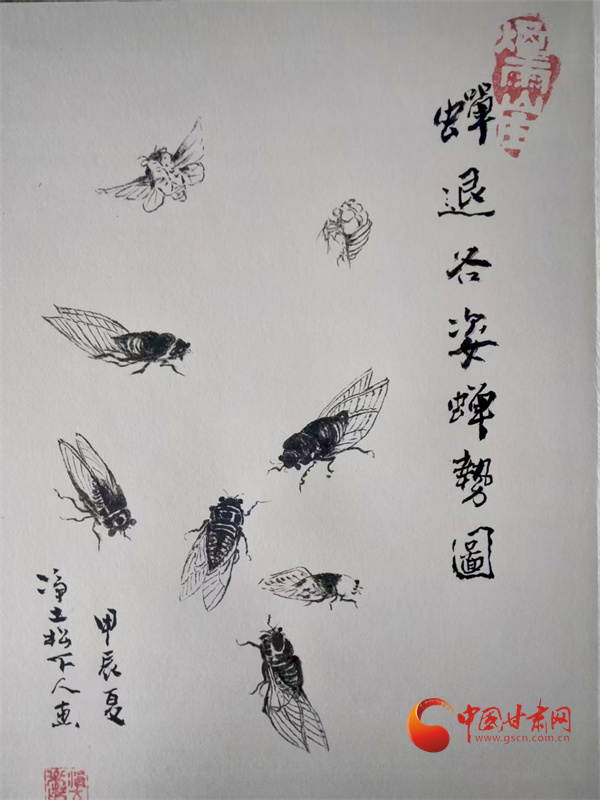 蟬退各姿蝉勢圖
甲辰夏
净土松下人画
中国甘肃网
www.gscn.com.cn